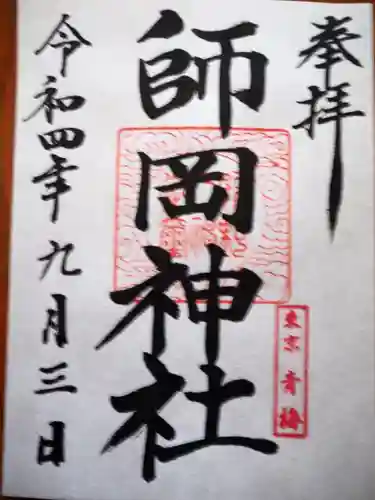 奉拝
師岡神社
東京青梅
令和四年九月三日